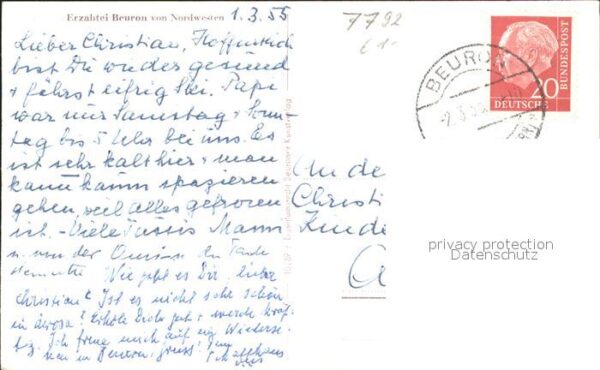 Erzabtei Beuron von Nordwesten
1.3.55
7792
Lieber Christian, Hoffentlich
bist Du wieder gesund
+ fährst eifrig Ski. Papi
war nur Samstag + Sonn-
tag bis 5 Uhr bei uns. Es
ist sehr kalt hier + man
kann kaum spazieren
gehen, weil alles gefroren
ist. - Viele Mami
u. von der Omi
Wie geht es Dir, lieber
Christian? Ist es nicht sehr schön
in Arosa? Erhole Dich gut + werde kräf-
tig. Ich freue mich auf ein Wiederse-
hen in
An de
Christi
Kinde
BEURON
20
DEUTSCHE
BUNDESPOST
privacy protection
Datenschutz